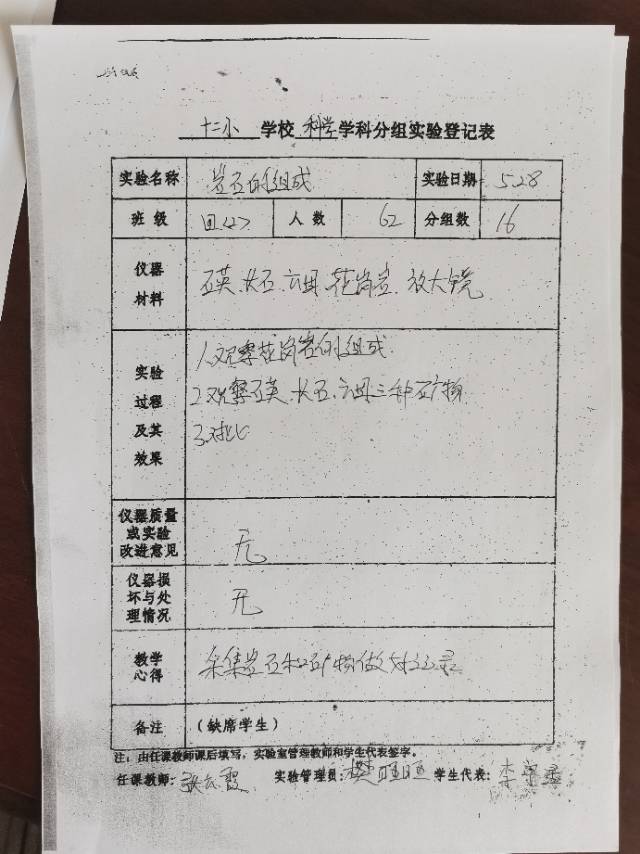 十二小 学校 科学 学科分组实验登记表
实验名称 岩石的组成 实验日期 5.28
班级 四(2) 人数 62 分组数 16
仪器材料 石英、长石、云母、花岗岩、放大镜
实验过程及其效果 1、观察花岗岩的组成
2、观察石英、长石、云母三种矿物
3、对比
仪器质量或实验改进意见 无
仪器损坏与处理情况 无
教学心得 采集岩石和矿物做好记录
备注 (缺席学生)
注：由任课教师课后填写，实验室管理教师和学生代表签字。
任课教师：张云霞 实验管理员：樊旺旺 学生代表：李